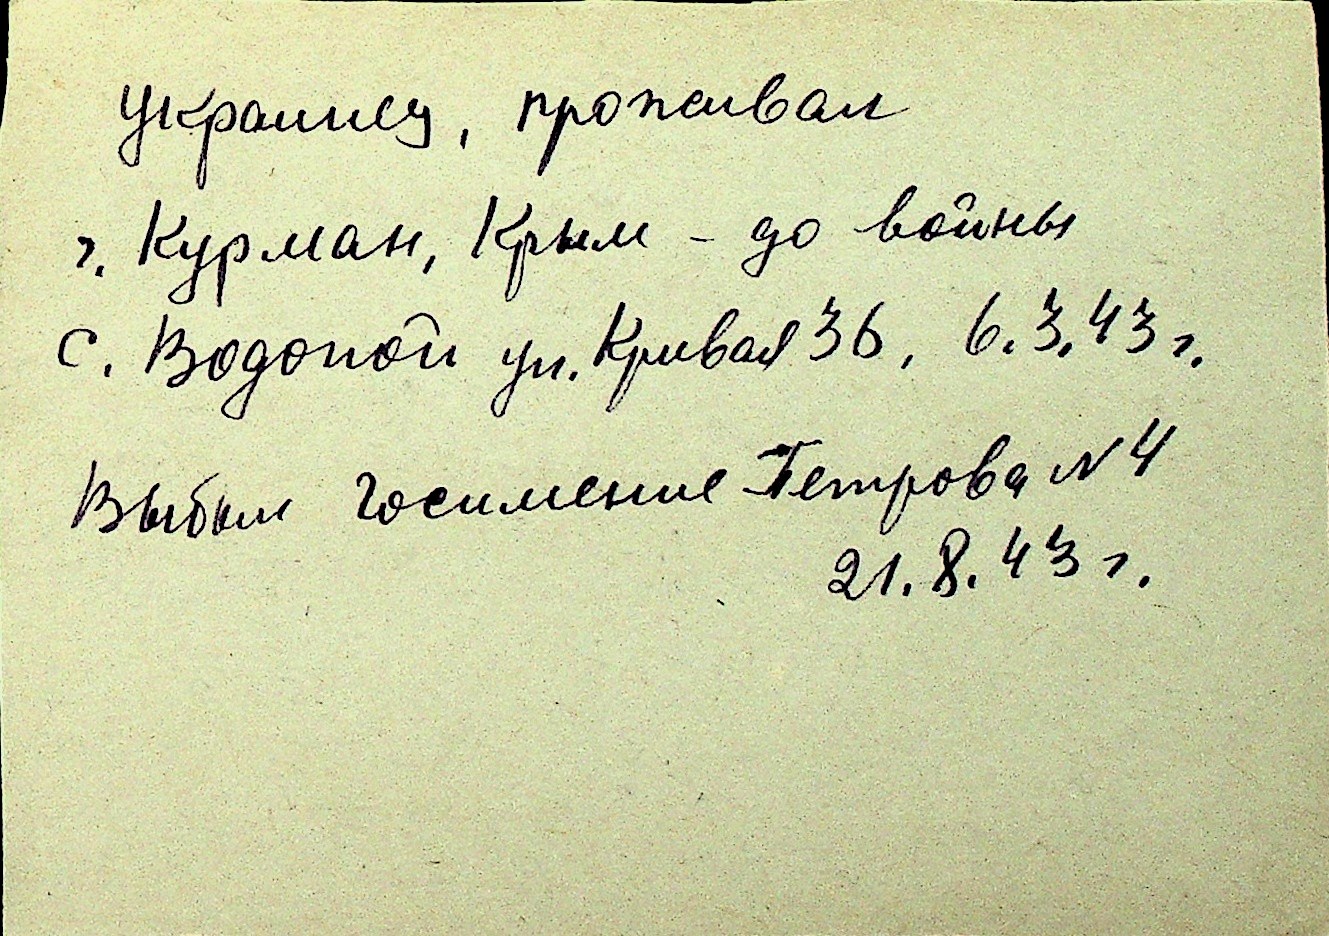 Украинец, проживал
г. Курман, Крым - до войны
с. Водопой ул. Кривая 36, 6.3.43 г.
Выбыл госимение Петрова N 4
21.8.43 г.